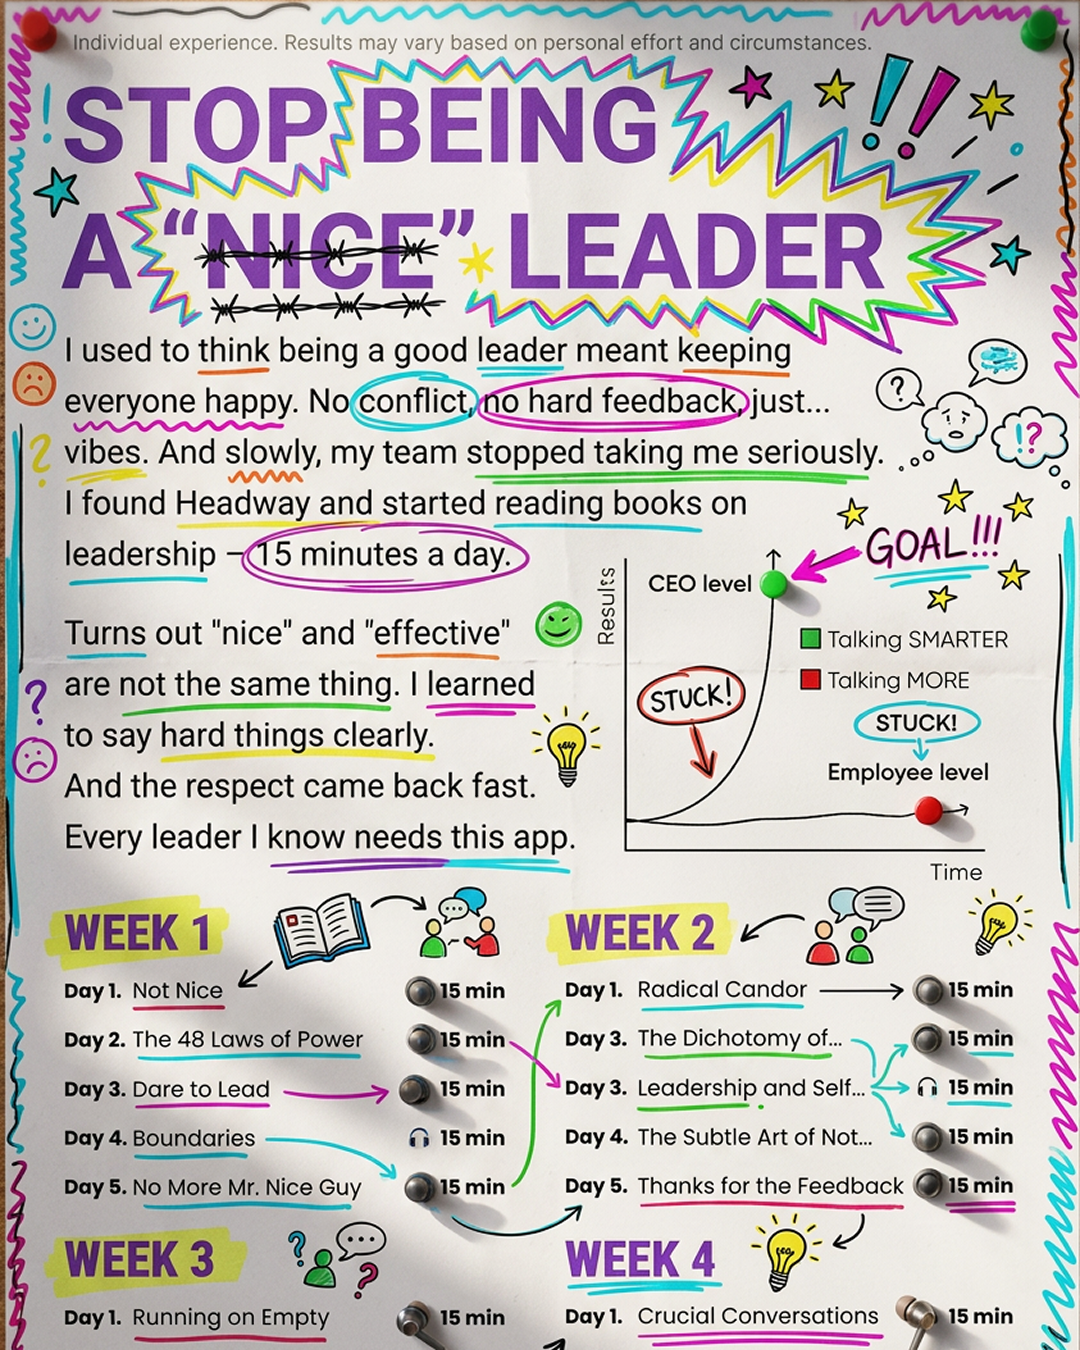 Individual experience. Results may vary based on personal effort and circumstances.
STOP BEING
A “NICE” LEADER
I used to think being a good leader meant keeping
everyone happy. No conflict, no hard feedback, just...
vibes. And slowly, my team stopped taking me seriously.
I found Headway and started reading books on
leadership – 15 minutes a day.
Turns out "nice" and "effective"
are not the same thing. I learned
to say hard things clearly.
And the respect came back fast.
Every leader I know needs this app.
?
!?
?
?
GOAL!!!
Results
CEO level
Talking SMARTER
Talking MORE
STUCK!
STUCK!
Employee level
Time
WEEK 1
Day 1. Not Nice 15 min
Day 2. The 48 Laws of Power 15 min
Day 3. Dare to Lead 15 min
Day 4. Boundaries 15 min
Day 5. No More Mr. Nice Guy 15 min
WEEK 2
Day 1. Radical Candor 15 min
Day 3. The Dichotomy of... 15 min
Day 3. Leadership and Self... 15 min
Day 4. The Subtle Art of Not... 15 min
Day 5. Thanks for the Feedback 15 min
WEEK 3
? ?
Day 1. Running on Empty 15 min
WEEK 4
Day 1. Crucial Conversations 15 min